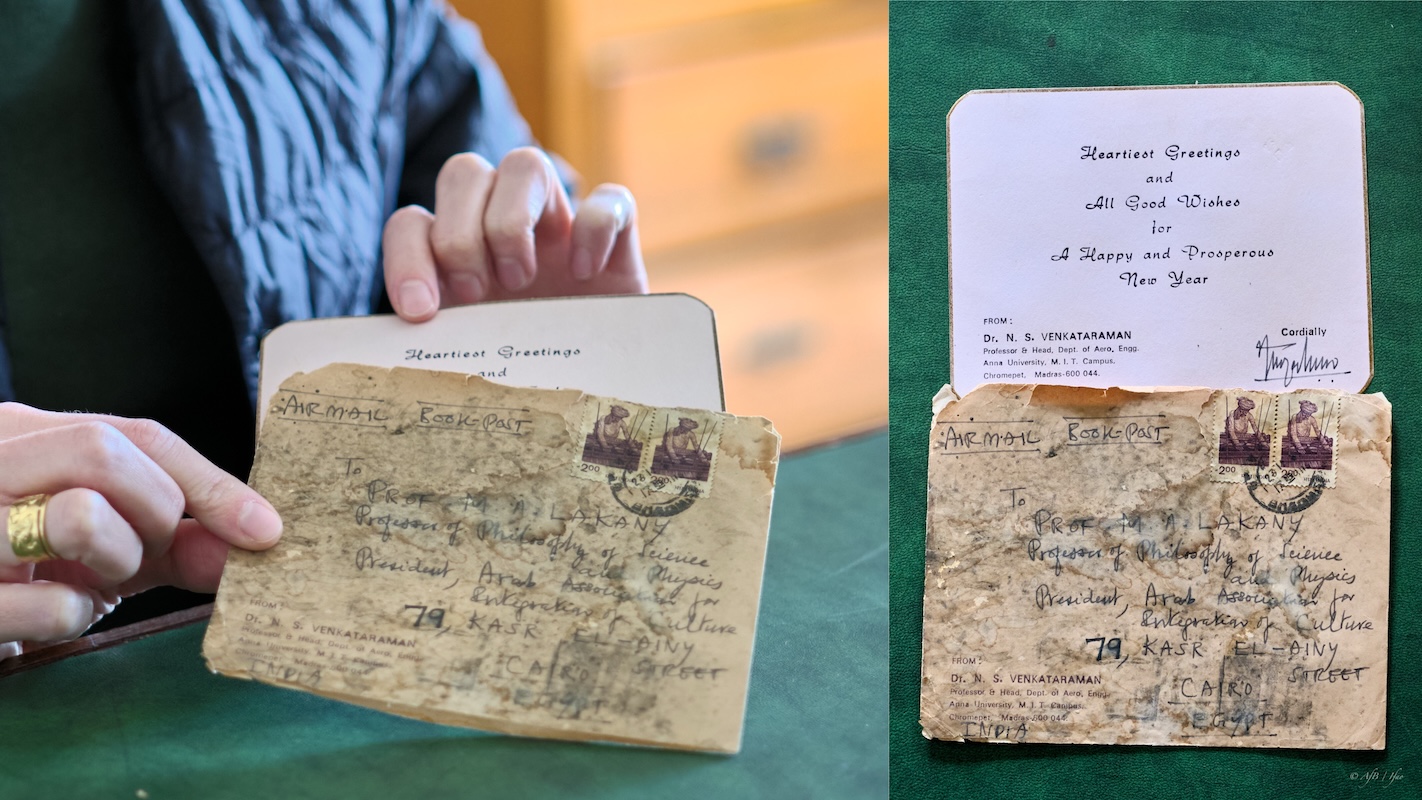 Heartiest Greetings
and
AIRMAIL BOOK-POST
2.00
To
PROF M A. LAKANY
Professor of Philosophy of Science
and Physics
President, Arab Association for
Integration of Culture
79, KASR EL-AINY
STREET
CAIRO
EGYPT
FROM:
Dr. N. S. VENKATARAMAN
Professor & Head, Dept. of Aero. Engg.
Anna University, M. I. T. Campus,
INDIA
Heartiest Greetings
and
All Good Wishes
for
A Happy and Prosperous
New Year
FROM:
Dr. N. S. VENKATARAMAN
Professor & Head, Dept. of Aero. Engg.
Anna University, M. I. T. Campus,
Chromepet, Madras-600 044.
Cordially
AIRMAIL BOOK-POST
2.00
To
PROF M A. LAKANY
Professor of Philosophy of Science
and Physics
President, Arab Association for
Integration of Culture
79, KASR EL-AINY
STREET
CAIRO
EGYPT
FROM:
Dr. N. S. VENKATARAMAN
Professor & Head, Dept. of Aero. Engg.
Anna University, M. I. T. Campus,
Chromepet, Madras-600 044.
INDIA